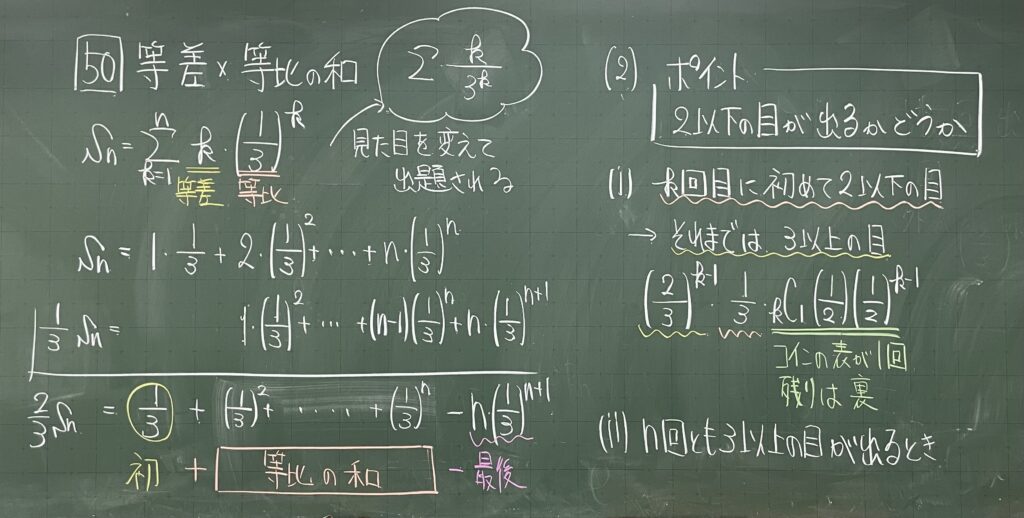 50 等差×等比の和
Σ k/3^k
Sn = Σ_{k=1}^{n} k・(1/3)^k
等差 等比
見た目を変えて
出題される
Sn = 1・1/3 + 2・(1/3)^2 + ・・・ + n・(1/3)^n
1/3 Sn = 1・(1/3)^2 + ・・・ + (n-1)(1/3)^n + n・(1/3)^{n+1}
2/3 Sn = 1/3 + (1/3)^2 + ・・・・・ + (1/3)^n - n(1/3)^{n+1}
初 + 等比の和 - 最後
(2) ポイント
2以下の目が出るかどうか
(i) k回目に初めて2以下の目
→ それまでは 3以上の目
(2/3)^{k-1}・1/3・kC1(1/2)(1/2)^{k-1}
コインの表が1回
残りは裏
(ii) n回とも3以上の目が出るとき